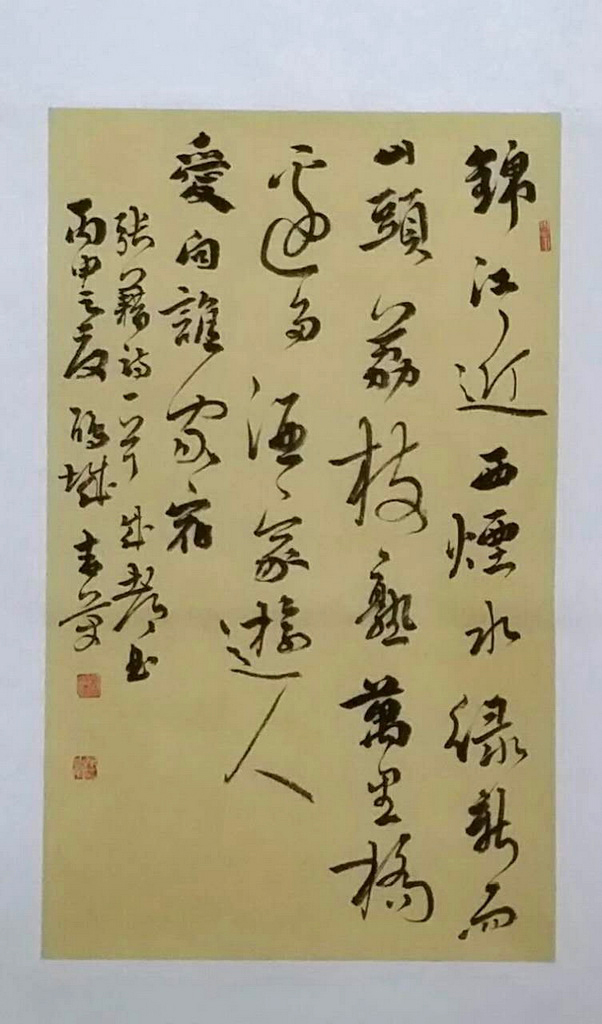 錦江近西煙水綠新雨
山頭荔枝熟萬里橋
邊多酒家遊人
愛向誰家宿
張籍詩一首成都
丙申之夏